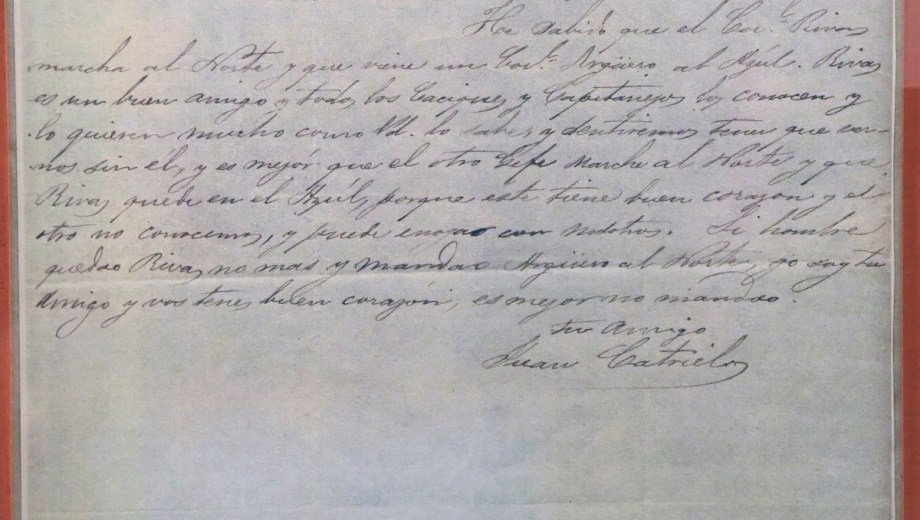 He sabido que el Cor.l Rivas
marcha al Norte y que viene un Cor.l Argüero al Azúl. Rivas
es un buen amigo y todos los Caciques y Capitanejos lo conocen y
lo quieren mucho como Vd. lo sabe, y sentiremos tener que ver-
nos sin él, y es mejór que el otro Gefe marche al Norte y que
Rivas quede en el Azúl, porque éste tiene buen corazon y el
otro no conocemos, y puede enojao con nosotros. Si hombre
quedao Rivas no mas y mandao Argüero al Norte, yo soy tu
amigo y vos tenes buen corazón, es mejor no mandao.
Tu Amigo
Juan Catriel